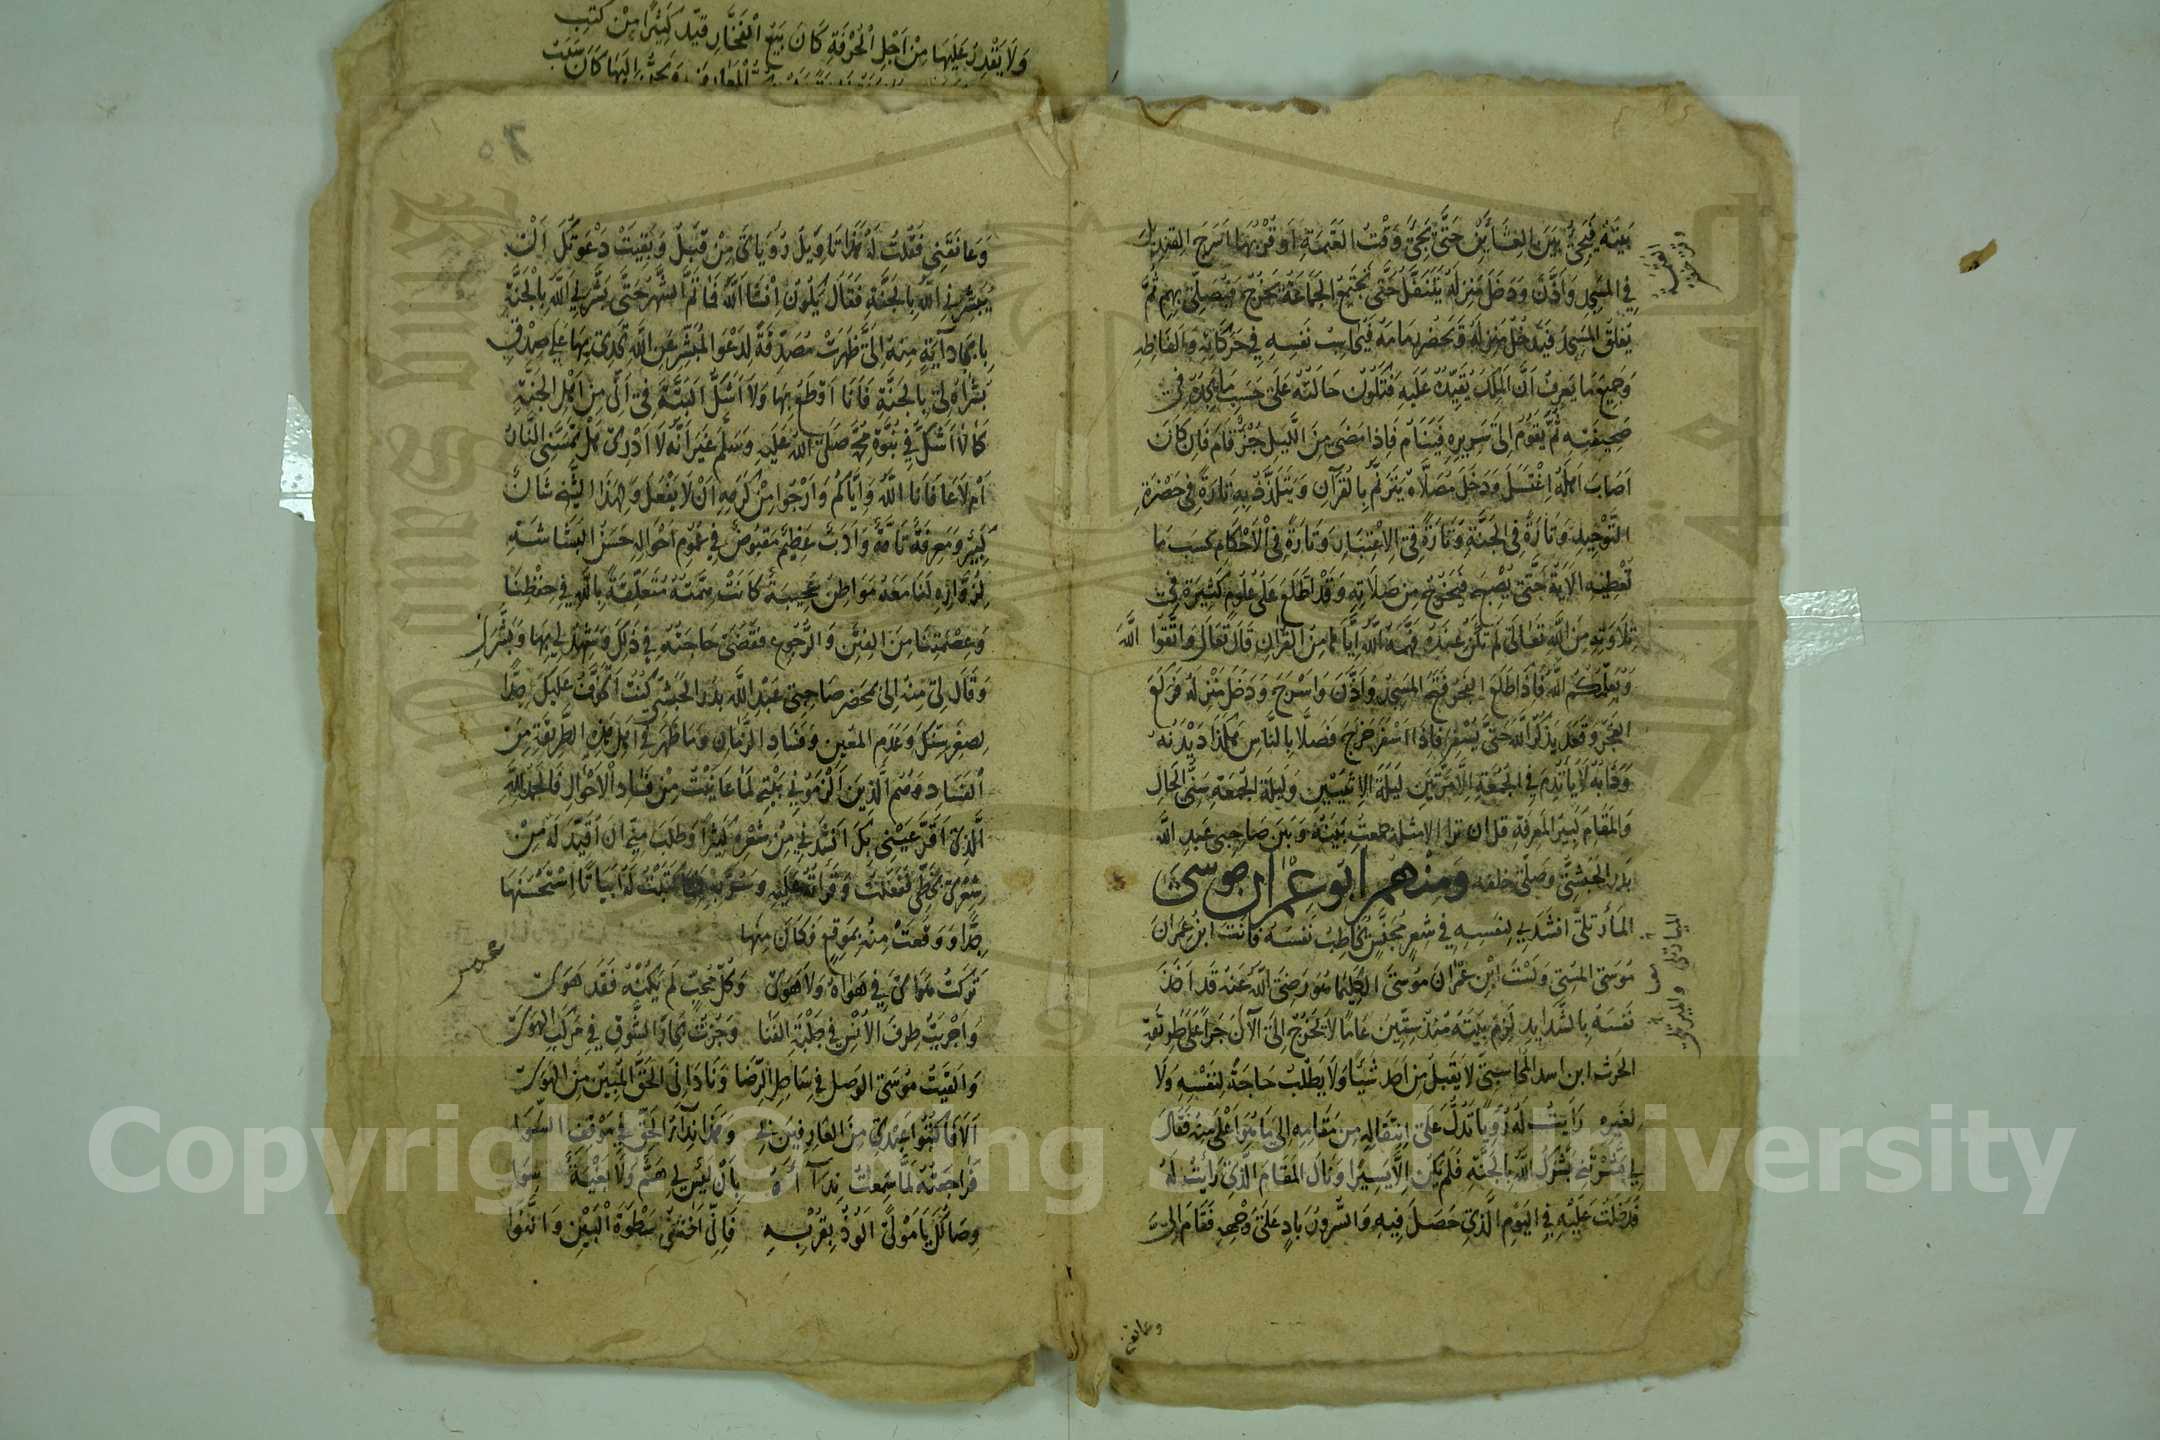 وَلَا يَقْدِرُ عَلَيْهَا مِنْ اَجْلِ الْحُرْفَةِ كَانَ يَبِيعُ الْفَخَّارَ قَيَّدَ كَثِيرًا مِنْ كُتُبِ
بَيْتَهُ فَيُحْيِى بَيْنَ العِشَائَيْنِ حَتَّى يَجِئَ وَقْتُ العَتَمَةِ اَو قُرْبُهَا اَسْرَجَ القِنْدِيلَ
فِي المَسْجِدِ وَاَذَّنَ وَدَخَلَ مَنْزِلَهُ يَتَنَفَّلُ حَتَّى تَجْتَمِعَ الجَمَاعَةُ يَخْرُجُ فَيُصَلِّي بِهِم ثُمَّ
يُغْلِقُ المَسْجِدَ فَيَدْخُلُ مَنْزِلَهُ فَيُحَاسِبُ نَفْسَهِ فِي حَرَكَاتِهِ وَاَلْفَاظِهِ
وَجَمِيعَ مَا يَعْرِفُ اَنَّ المَلَكَ يُقَيِّدُهُ عَلَيْهِ فَتَكُونُ حَالَتُهُ عَلَى حَسَبِ مَا يَجِدُهُ فِى
صَحِيفَتِهِ ثُمَّ يَقُومُ اِلَى سَرِيرِهِ فَيَنَامُ فَاِذَا مَضَى مِنَ اللَّيلِ جُزْءٌ قَامَ فَاِن كَانَ
اَصَابَ اَهْلَهُ اِغْتَسَلَ وَدَخَلَ مُصَلَّاه يَتَرَنَّمُ بِالْقُرْآنِ وَيَتَلَذَّذُ بِهِ تَارَةً فِى حَضْرَةِ
التَّوْحِيدِ وَتَارَةً فِى الجَنَّةِ وَتَارَةً فِى الاِعْتِبَارِ وَتَارَةً فِى الْاَحْكَامِ بِحَسَبِ مَا
تُعْطِيهِ الاَيَةُ حَتَّى يُصْبِحَ فَيَخْرُجُ مِنْ صَلَاتِهِ وَقَدْ اطَّلَعَ عَلَى عُلُومٍ كَثِيرَةٍ فِى
تِلَاوَتِهِ مِنَ اللَّهِ تَعَالَى لَم تَكُنْ عِنْدَهُ فَهَّمَهُ اللَّهُ اِيَّاهَا مِنَ القُرْآنِ قَالَ تَعَالَى وَاتَّقُوا اللَّهَ
وَيُعَلِّمُكُمُ اللَّهُ فَاِذَا طَلَعَ الفَجْرُ فَتَحَ المَسْجِدَ وَاَذَّنَ وَاَسْرَجَ وَدَخَلَ مَنْزِلَهُ فَرَكَعَ
الفَجْرَ وَقَعَدَ يَذْكُرُ اللَّهَ حَتَّى يُسْفِرَ فَاِذَا اَسْفَرَ خَرَجَ فَصَلَّا بِالنَّاسِ هَكَذَا دَيْدَنُهُ
وَدَابُهُ لَا يَأْتَدِمُ فِى الجُمُعَةِ اِلَّا مَرَّتَيْنِ لَيْلَةَ الاِثْنَيْنِ وَلَيْلَةَ الجُمُعَةِ سَنِىَّ الحَالِ
وَالمَقَامِ كَبِيرَ المَعْرِفَةِ قَلَّ ان ترا الا مثله جمعت بَيْنَهُ وَبَيْنَ صَاحِبِى عَبْدِ اللَّه
بَدْرِ الحَبَشِىِّ وَصَلَّى خلفه وَمِنْهُم اَبُو عِمْرَان مُوسَى
المَارْتُلِّي اَنْشَدَنِي لِنَفْسِهِ فِي شِعْرٍ مُجَنَّسٍ يُخَاطِبُ نَفْسَهُ فَاَنْتَ ابْنُ عِمْرَانَ
مُوسَى المُسِى وَلَسْتَ ابْنَ عِمْرَانَ مُوسَى الكَلِيمَا هُوَ رَضِىَ اللَّهُ عَنْهُ قَد اَخَذَ
نَفْسَهُ بِالشَّدَايِدِ لَزِمَ بَيْتَهُ مُنْذُ سِتِّينَ عَامًا لَا يَخْرُجُ اِلَى الآنَ جَرَا عَلَى طَرِيقَةِ
الحَرْث ابن اسد المُحَاسِبِىِّ لَا يَقْبَلُ مِنْ اَحَدٍ شَيْئًا وَلَا يَطْلُبُ حَاجَةً لِنَفْسِهِ وَلَا
لِغَيْرِهِ رَاَيْتُ لَهُ رُؤْيَا تَدُلُّ عَلَى اِنْتِقَالِهِ مِنْ مَقَامِهِ اِلَى مَا هُوَ اَعْلَى مِنْهُ فَقَالَ
لِي بَشَّرْتَنِي بَشَّرَكَ اللَّهُ بِالجَنَّةِ فَلَم يَكُنْ اِلَّا يَسِيرًا وَنَالَ المَقَامَ الَّذِى رَاَيْتُ لَهُ
فَدَخَلْتُ عَلَيْهِ فِي اليَوْمِ الَّذِي حَصَلَ فِيهِ وَالسُّرُورُ بَادٍ عَلَى وَجْهِهِ فَقَامَ اِلَىَّ
وعانقنى
٦٥
وَعَانَقَنِي فَقُلْتُ لَهُ هَذَا تَاوِيلُ رُؤْيَاىَ مِنْ قَبْلُ وَبَقِيَتْ دَعْوَتُكَ اَنْ
يُبَشِّرَنِي اللَّهُ بِالجَنَّةِ فَقَالَ يَكُونُ اِنْشَا اللَّهُ فَمَا تَمَّ الشَّهْرُ حَتَّى بَشَّرَنِي اللَّهُ بِالْجَنَّةِ
بِايجَادِ آيَةٍ مِنْهُ اِلَىَّ ظَهَرَتْ مُصَدِّقَةً لِدَعْوَا المُبَشِّرِ عَنِ اللَّهِ تَحَدَّى بِهَا عَلَى صِدْقِ
بُشْرَاهُ لِي بِالجَنَّةِ فَاَنَا اَقْطَعُ بِهَا وَلَا اَشُكُّ اَلْبَتَّةَ فِى اَنِّى مِنْ اَهْلِ الجَنَّةِ
كَمَا لَا اَشُكُّ فِي نُبُوَّةِ مُحَمَّد صَلَّى اللَّهُ عَلَيْهِ وَسَلَّمَ غَيْرَ اَنَّهُ لَا اَدْرِى هَلْ تَمَسَّنِى النَّارُ
اَم لَا عَافَانَا اللَّهُ وَاِيَّاكُم وَاَرْجُوا مِنْ كَرَمِهِ اَنْ لَا يَفْعَلَ وَلِهَذَا الشَّيْخِ شَانٌ
كَبِيرٌ وَمَعْرِفَةٌ تَامَّةٌ وَاَدَبٌ عَظِيمٌ مَقْبُوضٌ فِي عُمُومِ اَحْوَالِهِ حَسَنُ البَشَاشَةِ
لِزُوَّارِهِ لَنَا مَعَهُ مَوَاطِنُ عَجِيبَةٌ كَانَتْ هِمَّتُهُ مُتَعَلِّقَةً بِاللَّهِ فِي حِفْظِنَا
وَعِصْمَتِنَا مِنَ الفِتَنِ وَالرُّجُوعِ فَقُضِىَ حَاجَتُهُ فِي ذَلِكَ وَشَهِدَ لِي بِهَا وَبَشَّرَنِى
وَقَالَ لِي مَرَّةً بِمَحْضَرِ صَاحِبِى عَبْدِ اللَّهِ بَدْرِ الحَبَشِىِّ كُنْتُ اَتَخَوَّفُ عَلَيْكَ جِدًّا
لِصِغَرِ سِنِّكَ وَعَدَمِ المُعِينِ وَفَسَادِ الزَّمَانِ وَمَا ظَهَرَ فِي اَهْلِ هَذِهِ الطَّرِيقَةِ مِنَ
الْفَسَادِ وَهُمُ الَّذِينَ اَلْزَمُونِي بَيْتِي لَمَا عَايَنْتُ مِنْ فَسَادِ الْاَحْوَالِ فَالحَمْدُ لِلَّهِ
الَّذِى اَقَرَّ عَيْنِى بِكَ اَنْشَدَنِي مِنْ شِعْرِهِ كَثِيرًا وَطَلَبَ مِنِّي اَنْ اُقَيِّدَ لَهُ مِنْ
شِعْرِى بِخَطِّى فَفَعَلْتُ وَقَرَاْتُهُ عَلَيْهِ وَسُرَّ بِهِ كَتَبْتُ لَهُ اَبْيَاتًا اِسْتَحْسَنَهَا
جِدًّا وَوَقَعَتْ مِنْهُ بِمَوْقِعٍ فَكَانَ مِنْهَا
شعر
تَرَكْتُ هَوَاىَ فِي هَوَاهُ وَلَا هَوَى وَكُلُّ مُحِبٍّ لَم يَكُنْهُ فَقَد هَوَى
وَاَجْرَيْتُ طِرْفَ الاُنْسِ فِي حَلْبَةِ الفَنَا وَجُزْتُ بِحَارَ الشَّوْقِ فِي مَرْكَبِ الهَوَى
وَاَلْقَيْتُ مُوسَى الوَصْلِ فِي سَاحِلِ الرِّضَا وَنَادَانِىَ الحَقُّ المُبِينُ مِنَ الهَوَى
اَلَا فَاكْتُبُوا عَبْدِى مِنَ العَارِفِينَ لِي وَهَذَا نِدَآءُ الحَقِّ فِي مَوْقِفِ السَّوَا
فَرَاجَعْتُهُ لَمَّا سَمِعْتُ نِدَآءَهُ بِاَنْ لَيْسَ لِي هَمٌّ وَلَا بُغْيَةٌ سِوَا
وِصَالُكَ يَا مَوْلَىَّ اَلُوذُ بِقُرْبِهِ فَاِنِّى اَخْتَشِى سَطْوَةَ الْبَيْنِ وَالنَّوَا